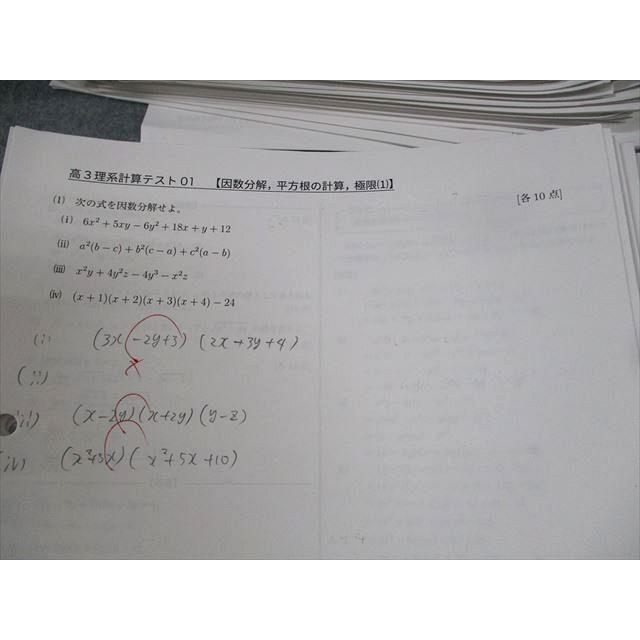 高3理系計算テスト01 【因数分解，平方根の計算，極限(1)】
[各10点]
(1) 次の式を因数分解せよ。
(i) 6x² + 5xy − 6y² + 18x + y + 12
(ii) a²(b − c) + b²(c − a) + c²(a − b)
(iii) x²y + 4y²z − 4y³ − x²z
(iv) (x + 1)(x + 2)(x + 3)(x + 4) − 24
(i) (3x −2y+3) (2x +3y+4)
(ii)
(iii) (x−2y)(x+2y)(y−z)
(iv) (x²+5x)(x²+5x+10)